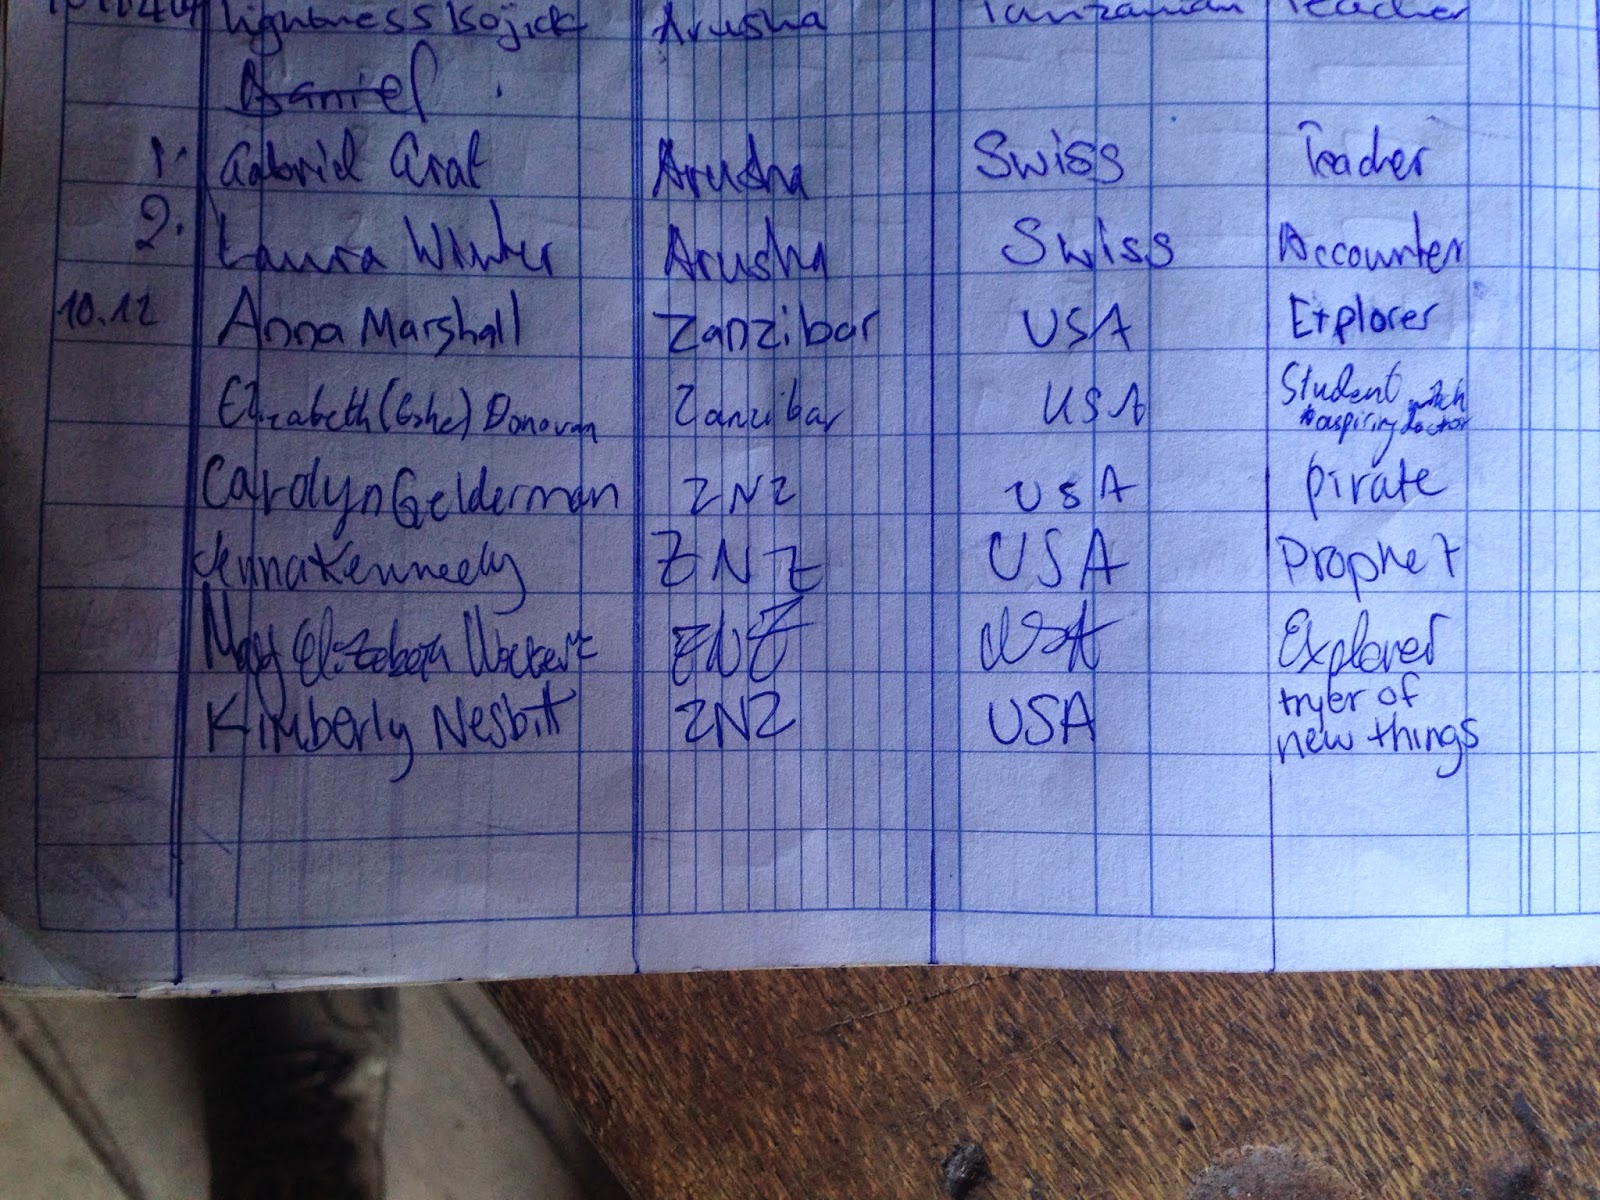 Arusha Tanzanian Teacher
Daniel
1. Gabriel Graf Arusha Swiss Teacher
2. Laura Winter Arusha Swiss Accounter
10.12 Anna Marshall Zanzibar USA Explorer
Elizabeth (Eshe) Donovan Zanzibar USA Student
aspiring doctor
Carolyn Gelderman ZNZ USA pirate
Jenna Kennedy ZNZ USA Prophet
Mary Elizabeth ZNZ USA Explorer
Kimberly Nesbitt ZNZ USA tryer of
new things